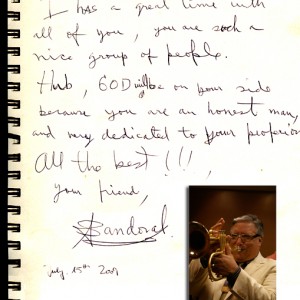 I has a great time with
all of you, you are such a
nice group of people.
Hub, GOD will be on your side
because you are an honest man,
and very dedicated to your profesion
All the best!!!,
your friend,
Sandoval.
July 15th 200